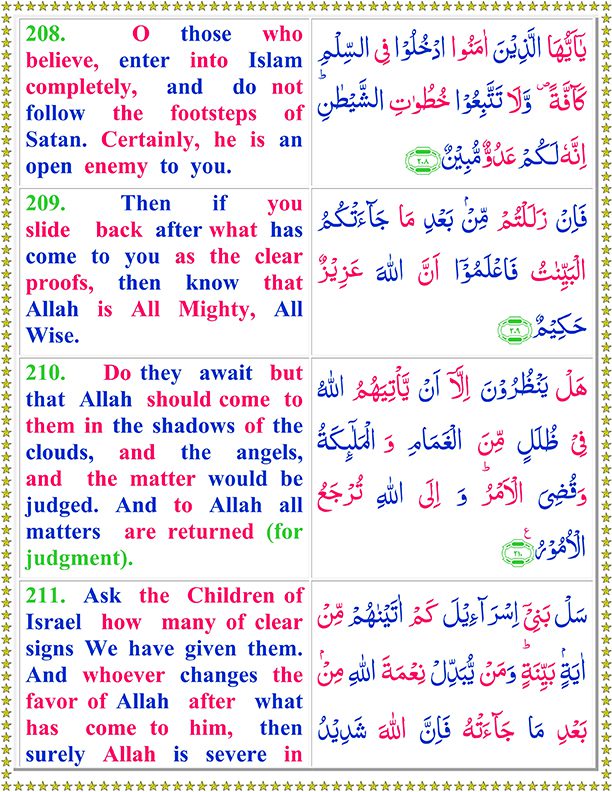 208. O those who
believe, enter into Islam
completely, and do not
follow the footsteps of
Satan. Certainly, he is an
open enemy to you.
يٰۤاَيُّهَا الَّذِيْنَ اٰمَنُوا ادْخُلُوْا فِي السِّلْمِ
كَآفَّةً ۪ وَّلَا تَتَّبِعُوْا خُطُوٰتِ الشَّيْطٰنِ ؕ
اِنَّهٗ لَكُمْ عَدُوٌّ مُّبِيْنٌ ﴿۲۰۸﴾
209. Then if you
slide back after what has
come to you as the clear
proofs, then know that
Allah is All Mighty, All
Wise.
فَاِنْ زَلَلْتُمْ مِّنْۢ بَعْدِ مَا جَآءَتْكُمُ
الْبَيِّنٰتُ فَاعْلَمُوْۤا اَنَّ اللهَ عَزِيْزٌ
حَكِيْمٌ ﴿۲۰۹﴾
210. Do they await but
that Allah should come to
them in the shadows of the
clouds, and the angels,
and the matter would be
judged. And to Allah all
matters are returned (for
judgment).
هَلْ يَنْظُرُوْنَ اِلَّاۤ اَنْ يَّاْتِيَهُمُ اللهُ
فِيْ ظُلَلٍ مِّنَ الْغَمَامِ وَ الْمَلٰٓئِكَةُ
وَقُضِيَ الْاَمْرُ ؕ وَ اِلَى اللهِ تُرْجَعُ
الْاُمُوْرُ ﴿۲۱۰﴾ ع
211. Ask the Children of
Israel how many of clear
signs We have given them.
And whoever changes the
favor of Allah after what
has come to him, then
surely Allah is severe in
سَلْ بَنِيْۤ اِسْرَآءِيْلَ كَمْ اٰتَيْنٰهُمْ مِّنْ
اٰيَةٍۭ بَيِّنَةٍ ؕ وَمَنْ يُّبَدِّلْ نِعْمَةَ اللهِ مِنْۢ
بَعْدِ مَا جَآءَتْهُ فَاِنَّ اللهَ شَدِيْدُ